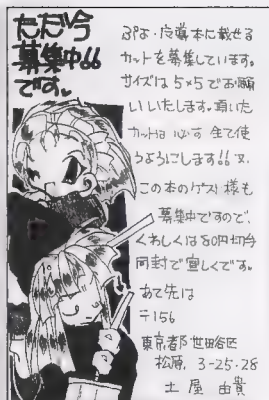 ただ今
募集中!!
です。
ぷよ・魔導本に載せる
カットを募集しています。
サイズは5×5でお願
いいたします。頂いた
カットは必ず全て使
うようにします!!又、
この本のゲスト様も
募集中ですので、
くわしくは80円切今
同封で宜しくです。
あて先は
〒156
東京都世田谷区
松原、3-25-28
土屋由貴